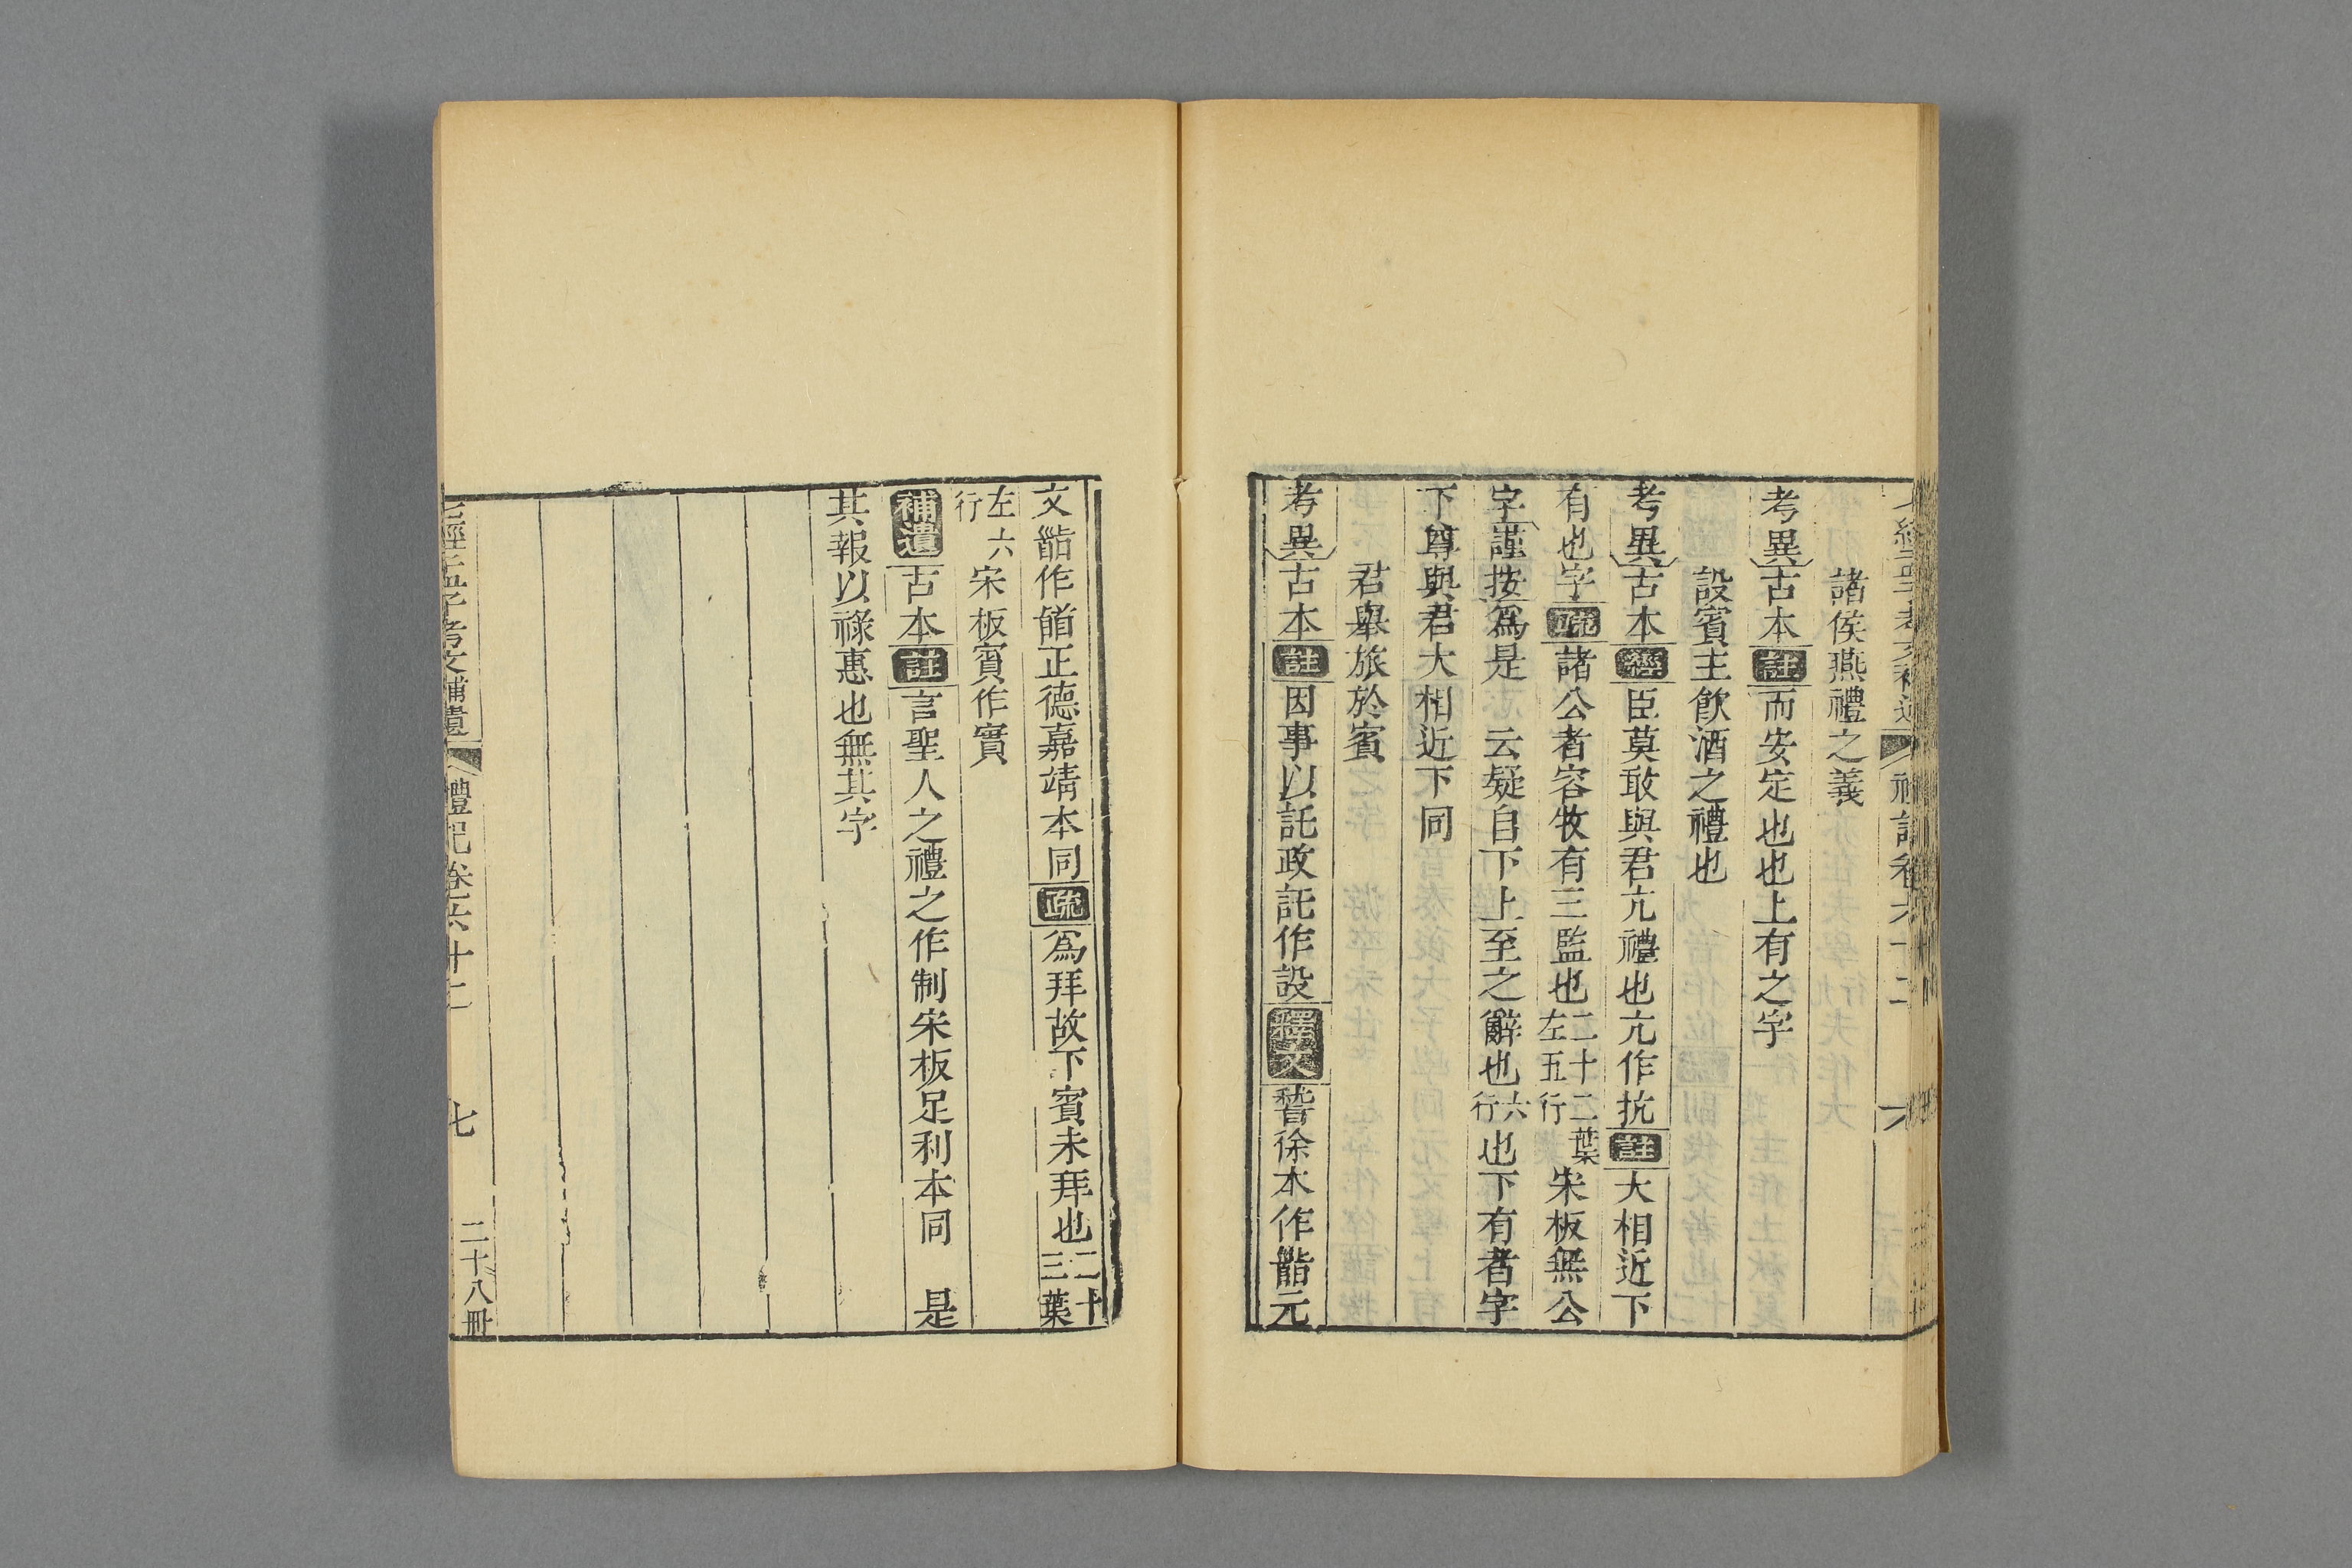 諸侯燕禮之義
考異古本註而安定也也上有之字
設賓主飲酒之禮也
考異古本經臣莫敢與君亢禮也亢作抗註大相近下
有也字疏諸公者容牧有三監也二十二葉左五行宋板無公
字謹按爲是 云疑自下上至之辭也六行也下有者字
下尊與君大相近下同
君舉旅於賓
考異古本註因事以託政託作設釋文䭫徐本作䭫元
文䭫作䭫正德嘉靖本同疏爲拜故下賓未拜也二十三葉
左六行宋板賓作實
補遺古本註言聖人之禮之作制宋板足利本同 是
其報以祿惠也無其字
七經孟子考文補遺 禮記卷六十二 七 二十八冊